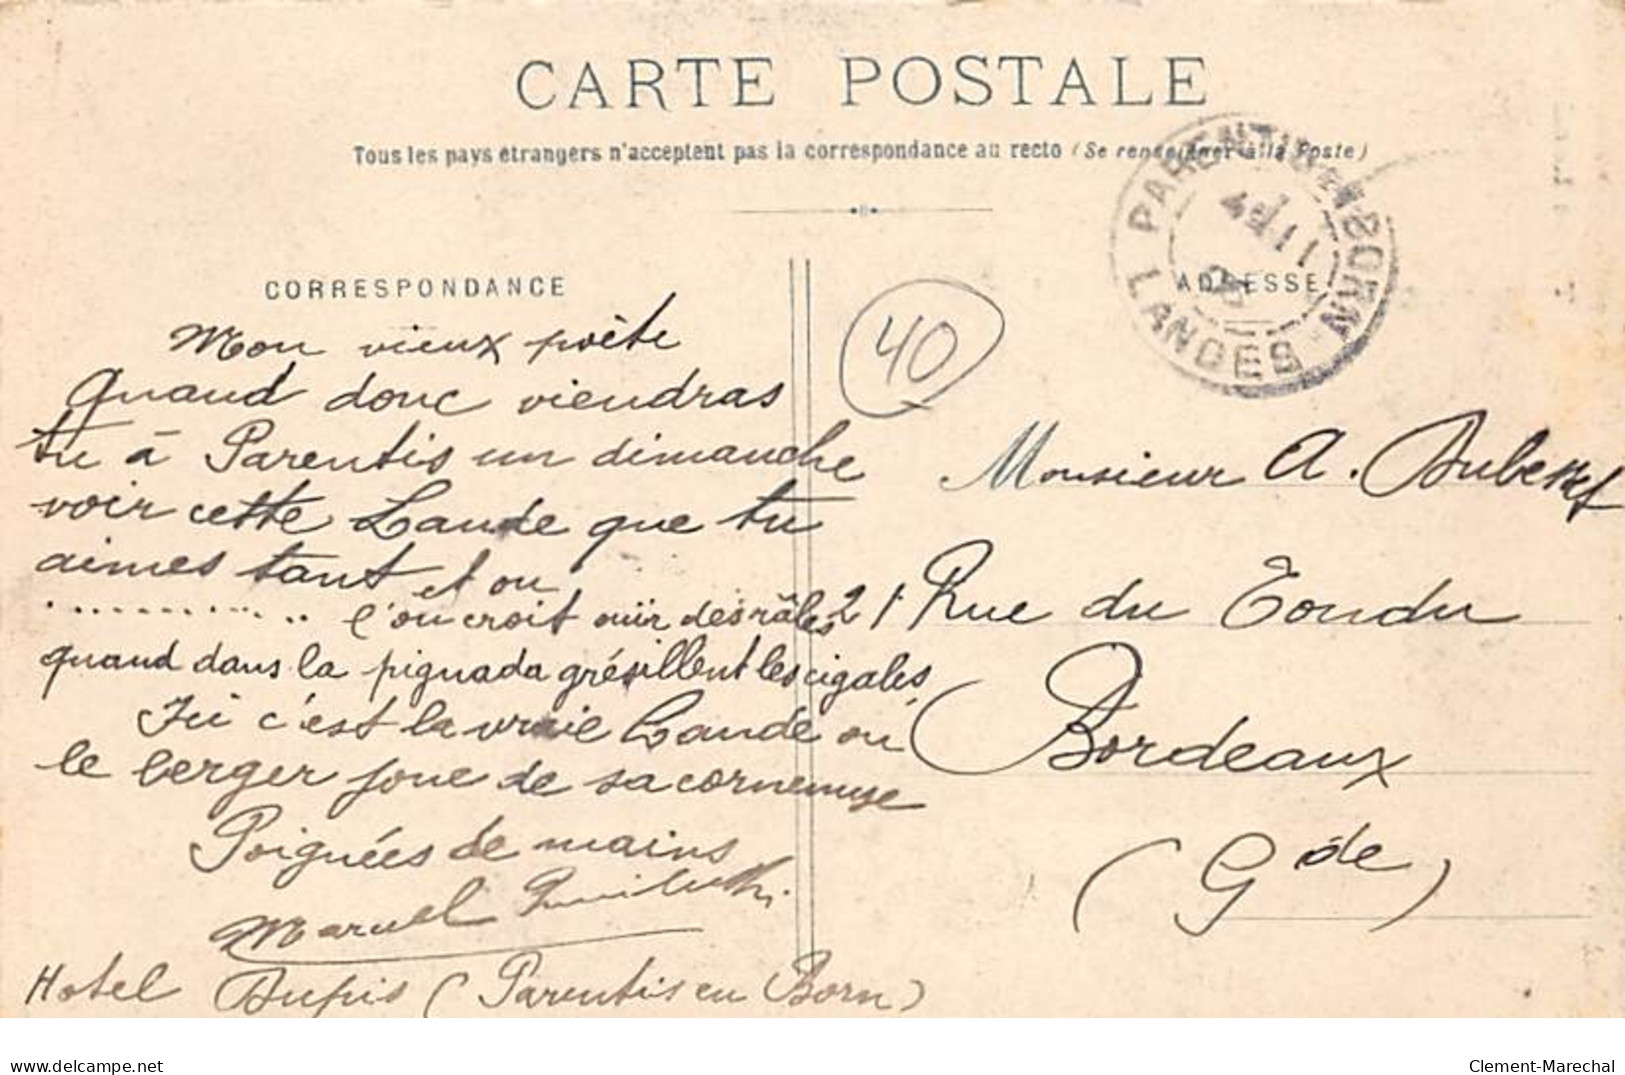 CARTE POSTALE
Tous les pays étrangers n'acceptent pas la correspondance au recto (Se renseigner à la Poste)
PARENTIS-EN-BORN
LANDES
CORRESPONDANCE
ADRESSE
40
Mon vieux poète
Quand donc viendras
tu à Parentis un dimanche
voir cette Lande que tu
aimes tant et ou
.............. l'on croit ouïr des râles
quand dans la pignada grésillent les cigales
Ici c'est la vraie Lande où
le berger joue de sa cornemuse
Poignées de mains
Marcel
Hotel Dupis (Parentis en Born)
Monsieur A.
21 Rue du Tondu
Bordeaux
(Gde)
delcampe.net
Clement-Marechal